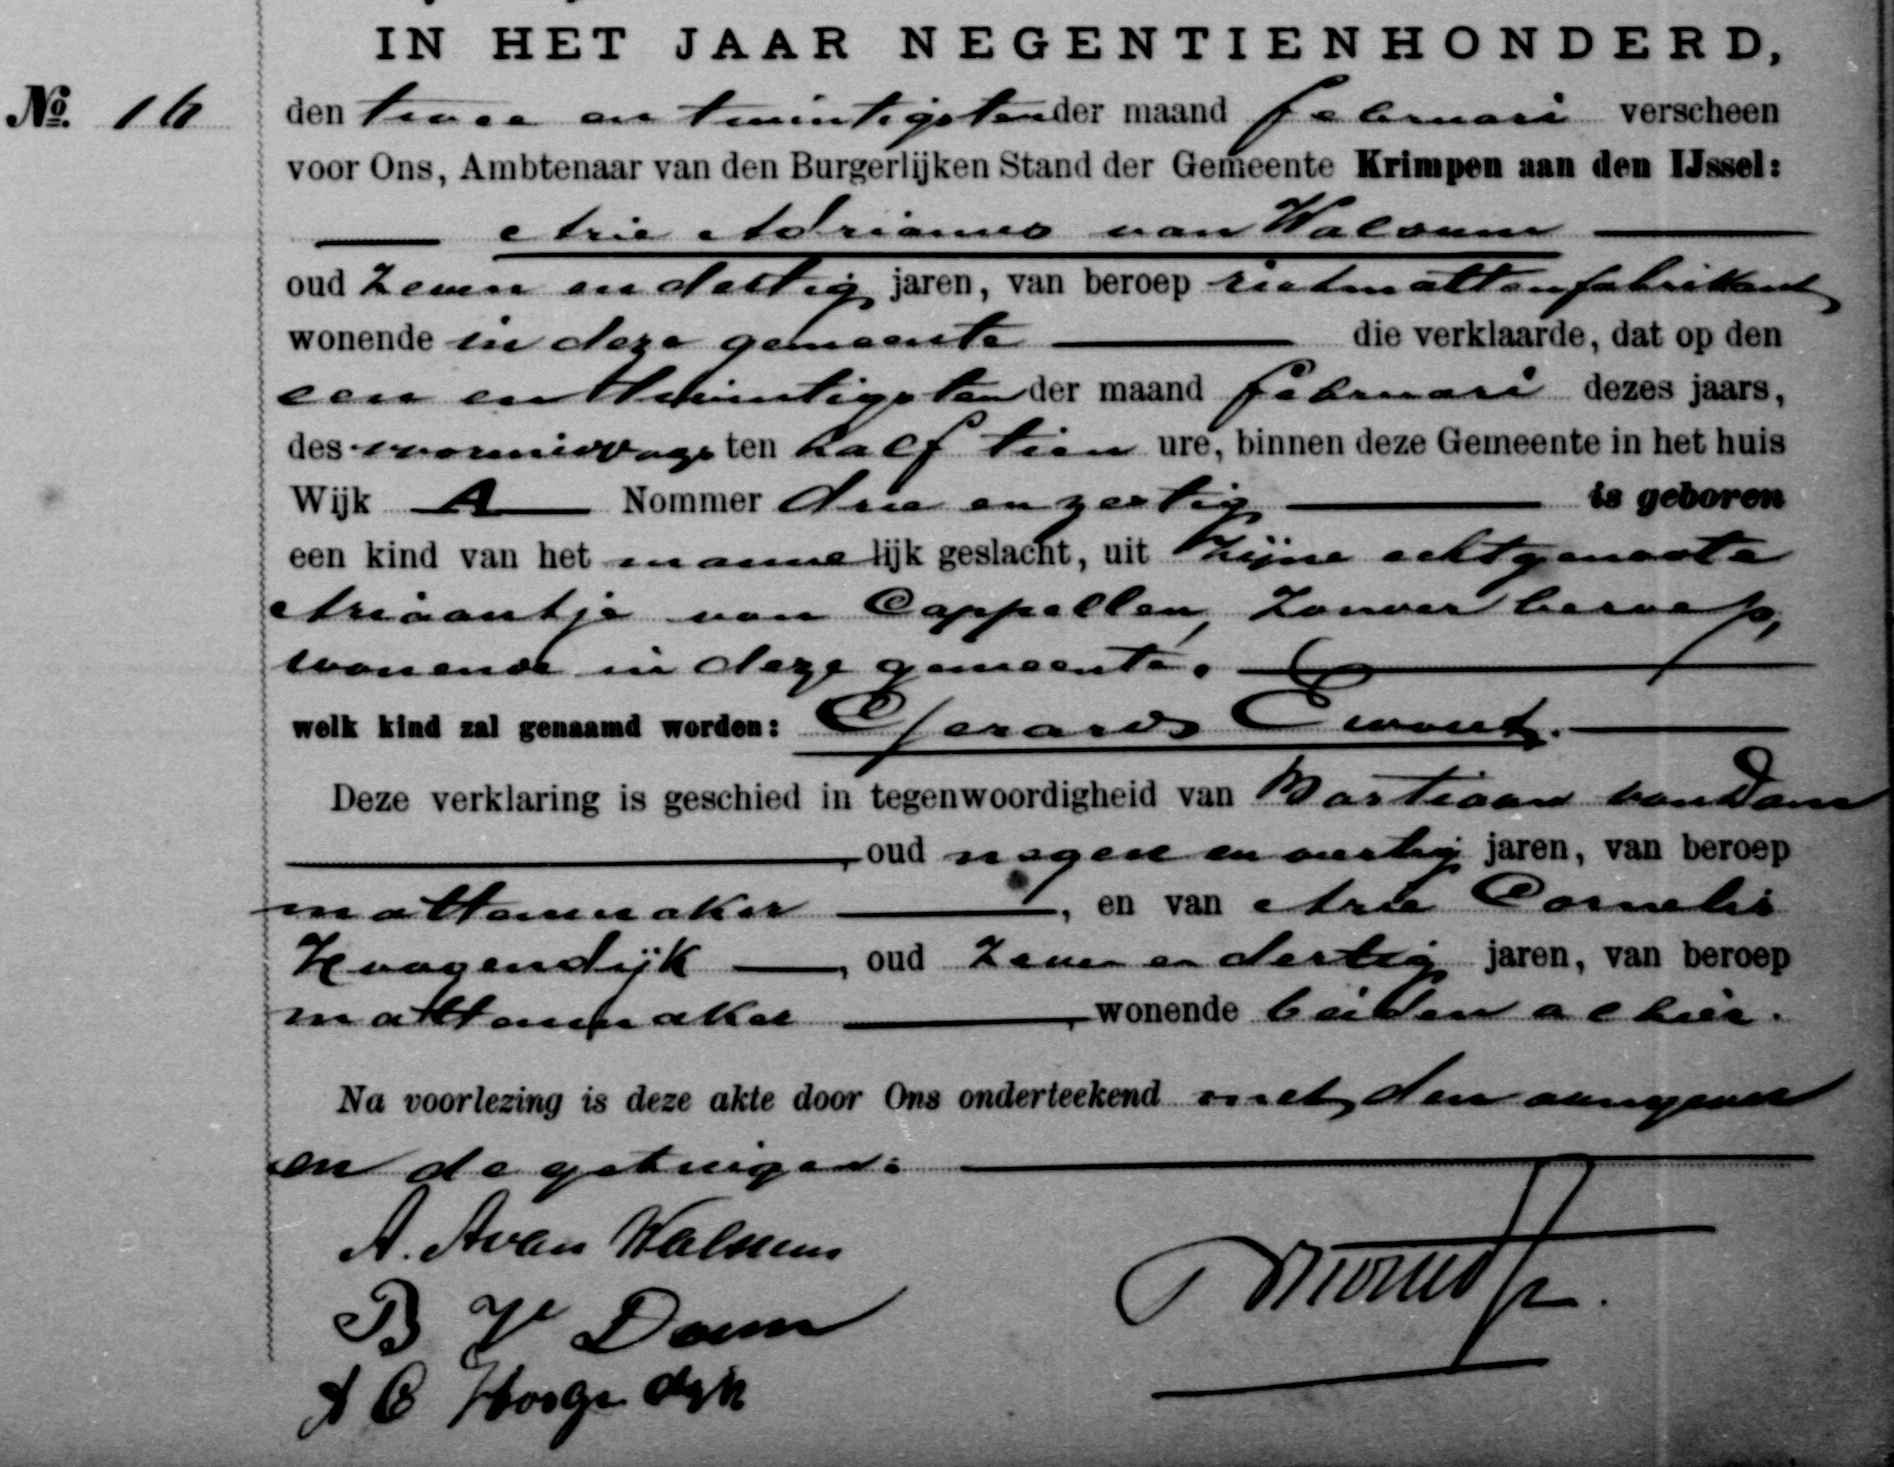 IN HET JAAR NEGENTIENHONDERD,
No. 16
den twee en twintigsten der maand februari verscheen
voor Ons, Ambtenaar van den Burgerlijken Stand der Gemeente Krimpen aan den IJssel:
Arie Adrianus van Walsum
oud zeven en dertig jaren, van beroep rietmattenfabrikant,
wonende in deze gemeente die verklaarde, dat op den
een en twintigsten der maand februari dezes jaars,
des voormiddags ten half tien ure, binnen deze Gemeente in het huis
Wijk A Nommer drie en zestig is geboren
een kind van het mannelijk geslacht, uit zijne echtgenoote
Ariaantje van Cappellen, zonder beroep,
wonende in deze gemeente.
welk kind zal genaamd worden: Gerard Ewout.
Deze verklaring is geschied in tegenwoordigheid van Bastiaan van Dam
, oud negen en veertig jaren, van beroep
mattenmaker , en van Arie Cornelis
Hoogendijk , oud zeven en dertig jaren, van beroep
mattenmaker , wonende beiden alhier.
Na voorlezing is deze akte door Ons onderteekend met den aangever
en de getuigen.
A. A van Walsum
B V Dam
A C Hoogendijk